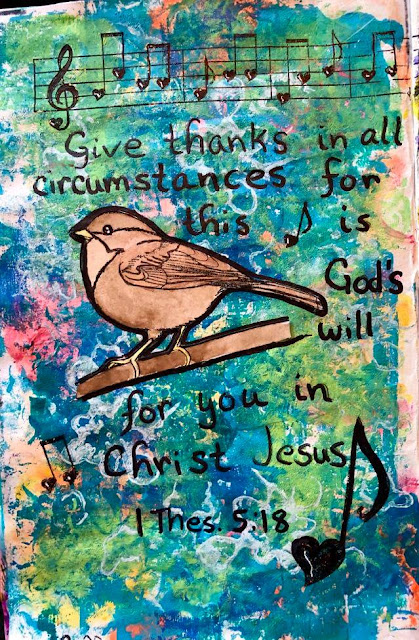 Give thanks in all
circumstances for
this is
God's
will
for you in
Christ Jesus
1 Thes. 5:18